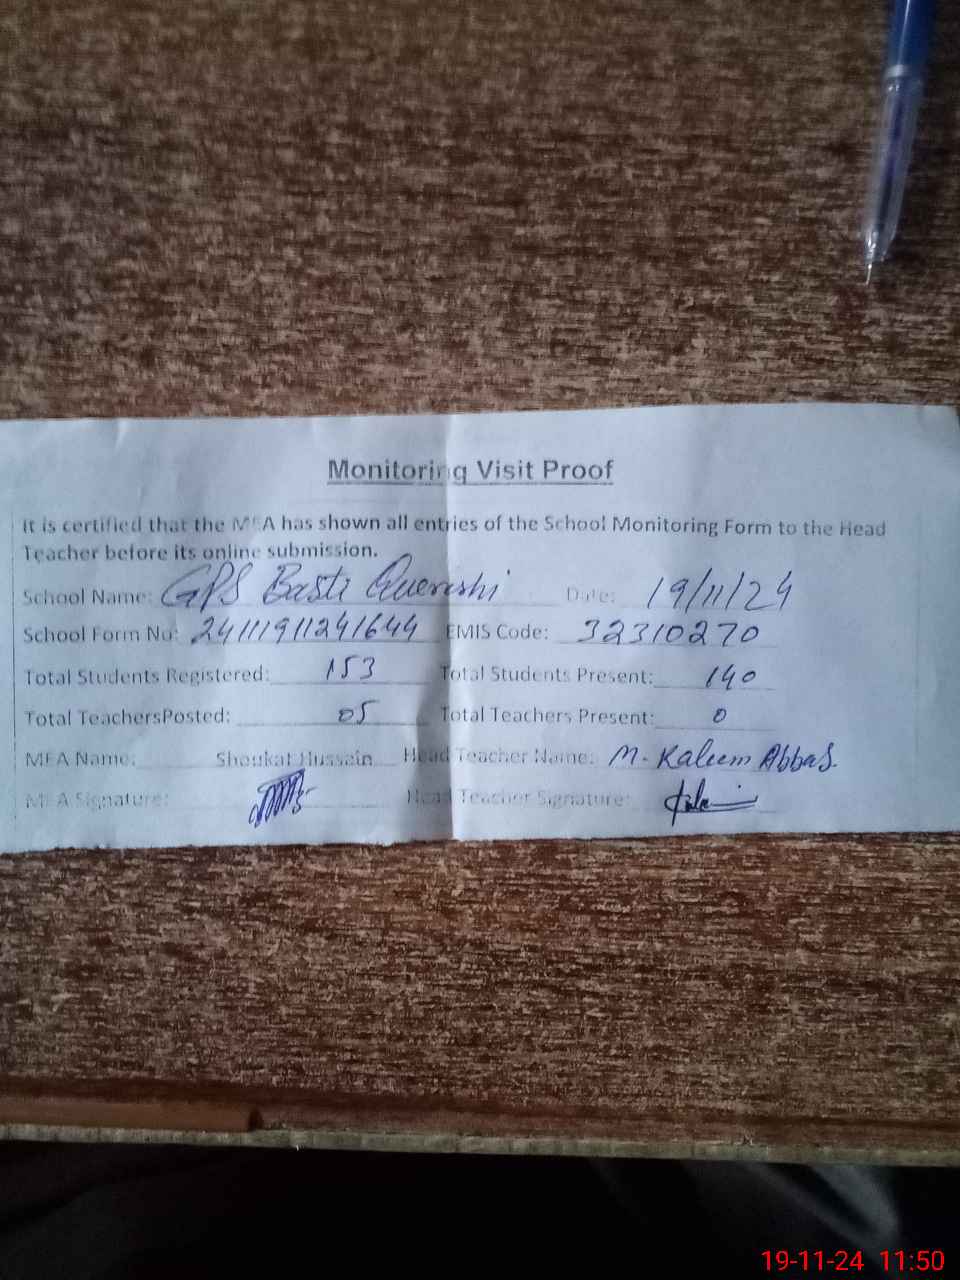 Monitoring Visit Proof
It is certified that the MEA has shown all entries of the School Monitoring Form to the Head
Teacher before its online submission.
School Name: GPS Basti Querishi Date: 19/11/24
School Form No: 24111911241644 EMIS Code: 32310270
Total Students Registered: 153 Total Students Present: 140
Total TeachersPosted: 05 Total Teachers Present: 0
MEA Name: Shoukat Hussain Head Teacher Name: M. Kaleem Abbas.
MEA Signature: Head Teacher Signature:
19-11-24 11:50